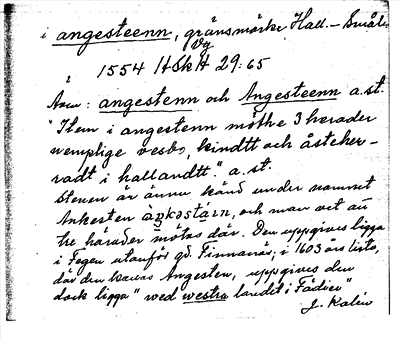 i angesteenn, gränsmärke Hall. – Smål.
Vg
1554 HSkH 29:65
Anm: angestenn och Angesteenn a.st.
"Item i angestenn möthe 3 herader
wemplige vesbo, kindtt och åsteher-
radt i hallandtt." a. st.
Stenen är ännu känd under namnet
Ankesten och man vet att
tre härader mötas där. Den uppgives ligga
i Fegen utanför gd. Finnanäs; i 1603 års lista,
där den kallas Angesten, uppgives den
dock ligga "wed westra landit i Fädien"
J. Kalén